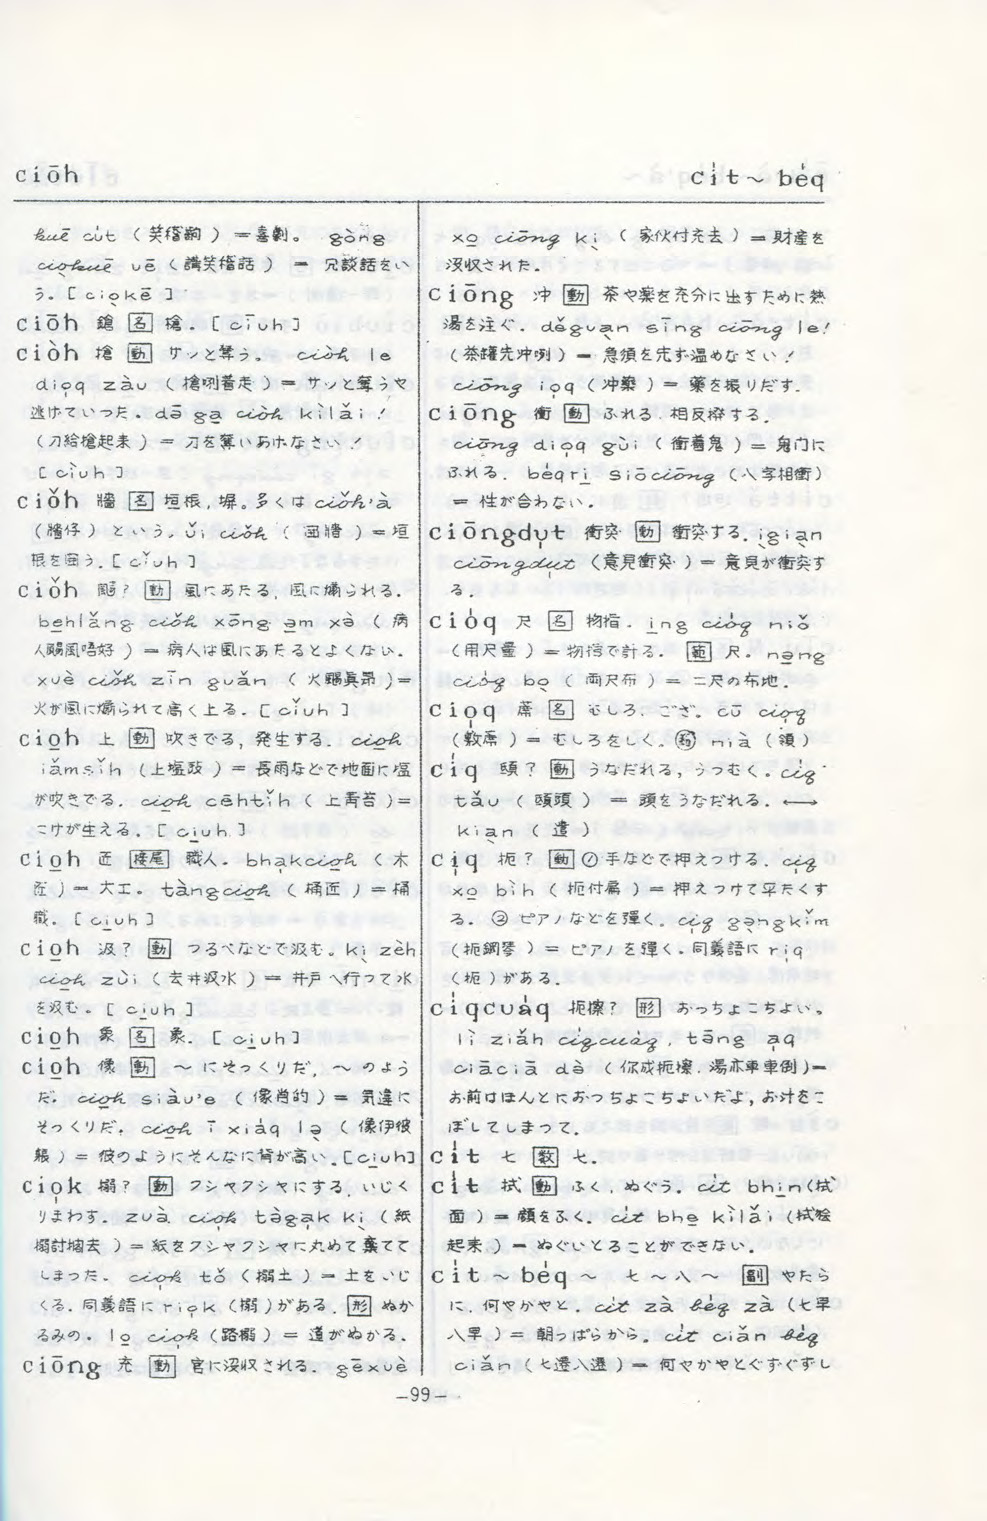 ciōh
cı̍t ~ bė̍q
kuē cu̍t (笑詼齣) = 喜劇。 gòng
ciọkuē uē (講笑詼話) = 冗談話をい
う。[ciọkē]
ciōh 鎗 [名] 槍. [cīuh]
ciòh 搶 [動] サッと奪う。 ciòh le
dioq zàu (搶咧着走) = サッと奪うや
逃げていった. dō gạ ciòh kilǎi!
(刀給搶起来) = 刀を奪いあげなさい!
[cìuh]
ciǒh 牆 [名] 垣根, 塀。多くは ciǒh'à
(牆仔) という. ǔi ciǒh (囲牆) = 垣
根を囲う. [cǐuh]
ciǒh 颺? [動] 風にあたる, 風に煽られる.
bẹhlǎng ciǒh xōng ạm xò (病
人颺風唔好) = 病人は風にあたるとよくない.
xuè ciǒh zīn guǎn (火颺真昂) =
火が風に煽られて高く上る. [cǐuh]
ciọh 上 [動] 吹きでる, 発生する. ciọh
iǎmsīh (上塩豉) = 長雨などで地面に塩
が吹きでる. ciọh cēhtǐh (上青苔) =
こけが生える. [cịuh]
ciọh 匠 [接尾] 職人. bhakciọh (木
匠) = 大工。 tàngciọh (桶匠) = 桶
職. [cịuh]
ciọh 汲? [動] つるべなどで汲む. kì zèh
ciọh zùi (去井汲水) = 井戸へ行って水
を汲む. [cịuh]
ciọh 象 [名] 象. [cịuh]
ciọh 像 [動] ~にそっくりだ, ~のよう
だ. ciọh siàu'e (像肖的) = 気違に
そっくりだ. ciọh ī xiaq lọ (像伊彼
躼) = 彼のようにそんなに背が高い. [cịuh]
ciok 搦? [動] クシャクシャにする, いじく
りまわす. zuà ciok tàgak kị (紙
搦討㧡去) = 紙をクシャクシャに丸めて棄てて
しまった. ciok tǒ (搦土) = 土をいじ
くる. 同義語に riok (搦)がある. [形] ぬか
るみの. lọ ciok (路搦) = 道がぬかる.
ciōng 充 [動] 官に没収される. gēxuè
xọ ciōng kị (家伙付充去) = 財産を
没収された.
ciōng 沖 [動] 茶や薬を充分に出すために熱
湯を注ぐ. děguạn sīng ciōng le!
(茶罐先沖咧) = 急須を先ず温めなさい!
ciōng ioq (沖薬) = 薬を振りだす.
ciōng 衝 [動] ふれる, 相反撥する.
ciōng dioq gùi (衝着鬼) = 鬼門に
ふれる. bėqrị siōciōng (八字相衝)
= 性が合わない.
ciōngdụt 衝突 [動] 衝突する. ịgiạn
ciōngdụt (意見衝突) = 意見が衝突す
る.
cio̍q 尺 [名] 物指. ịng cio̍q niǒ
(用尺量) = 物指で計る. [範] 尺. nạng
cio̍q bọ (両尺布) = 二尺の布地.
cioq 蓆 [名] むしろ, ござ. cū cioq
(敷蓆) = むしろをしく. 筋 nià (領)
ciq 頤? [動] うなだれる, うつむく. ciq
tǎu (頤頭) = 頭をうなだれる. ⟷
kiạn (遣)
ciq 扼? [動] ① 手などで押えつける. ciq
xọ bìh (扼付扁) = 押えつけて平たくす
る. ② ピアノなどを弾く. ciq gạngkǐm
(扼鋼琴) = ピアノを弾く. 同義語に riq
(扼)がある.
ciqcuaq 扼擦? [形] おっちょこちょい。
lì ziǎh ciqcuaq, tāng aq
ciāciā dò (你成扼擦, 湯亦車車倒) =
お前はほんとにおっちょこちょいだよ, お汁をこ
ぼしてしまって.
cı̍t 七 [数] 七.
cı̍t 拭 [動] ふく, ぬぐう. cı̍t bhịn (拭
面) = 顔をふく. cı̍t bhe kìlǎi (拭𣍐
起来) = ぬぐいとることができない.
cı̍t ~ bė̍q ~ 七 ~ 八 ~ [副] やたら
に, 何やかやと. cı̍t zà bė̍q zà (七早
八早) = 朝っぱらから. cı̍t ciǎn bė̍q
ciǎn (七遷八遷) = 何やかやとぐずぐずし
—99—